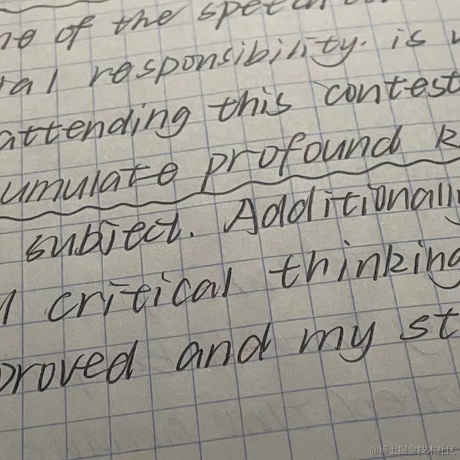 ne of the spe
ral responsibility. is
attending this contest
umulate profound k
subject. Additionally
l critical thinking
proved and my st
@稀土掘金技术社区